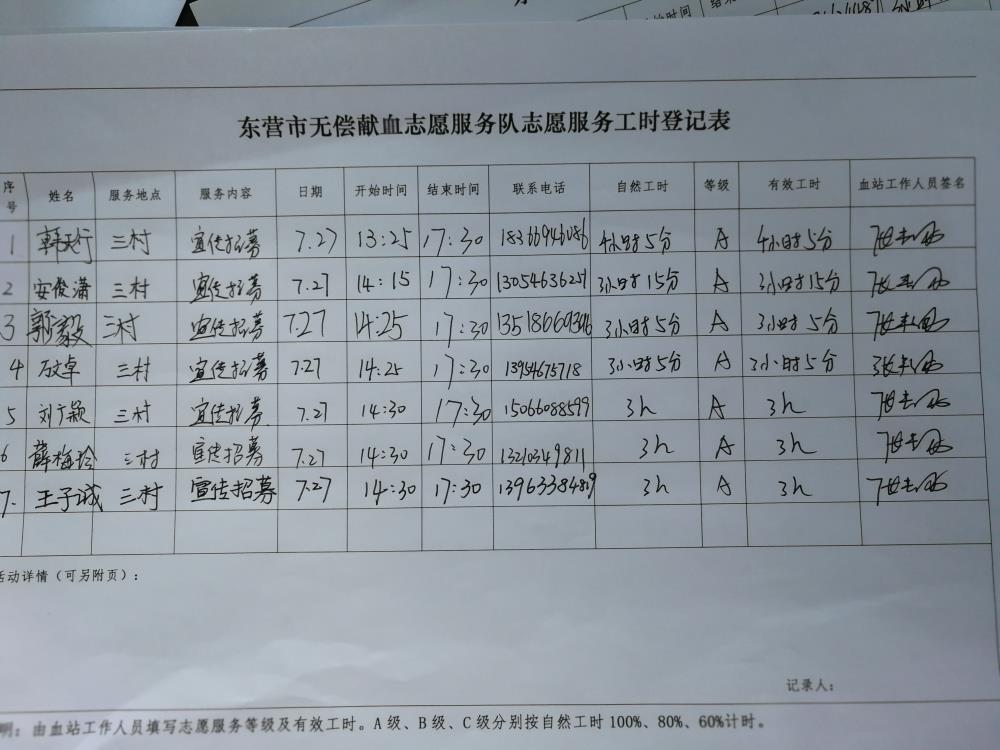 始时间
东营市无偿献血志愿服务队志愿服务工时登记表
序号 姓名 服务地点 服务内容 日期 开始时间 结束时间 联系电话 自然工时 等级 有效工时 血站工作人员签名
1 韩天行 三村 宣传招募 7.27 13:25 17:30 18366946086 4小时5分 A 4小时5分
2 安俊潇 三村 宣传招募 7.27 14:15 17:30 13054636251 3小时15分 A 3小时15分
3 郭毅 三村 宣传招募 7.27 14:25 17:30 3小时5分 A 3小时5分
4 万文卓 三村 宣传招募 7.27 14:25 17:30 13954675718 3小时5分 A 3小时5分
5 刘广颖 三村 宣传招募 7.27 14:30 17:30 15066088599 3h A 3h
6 薛梅玲 三村 宣传招募 7.27 14:30 17:30 13210349811 3h A 3h
7. 王子诚 三村 宣传招募 7.27 14:30 17:30 3h A 3h
活动详情（可另附页）：
记录人：
明：由血站工作人员填写志愿服务等级及有效工时。A级、B级、C级分别按自然工时100%、80%、60%计时。